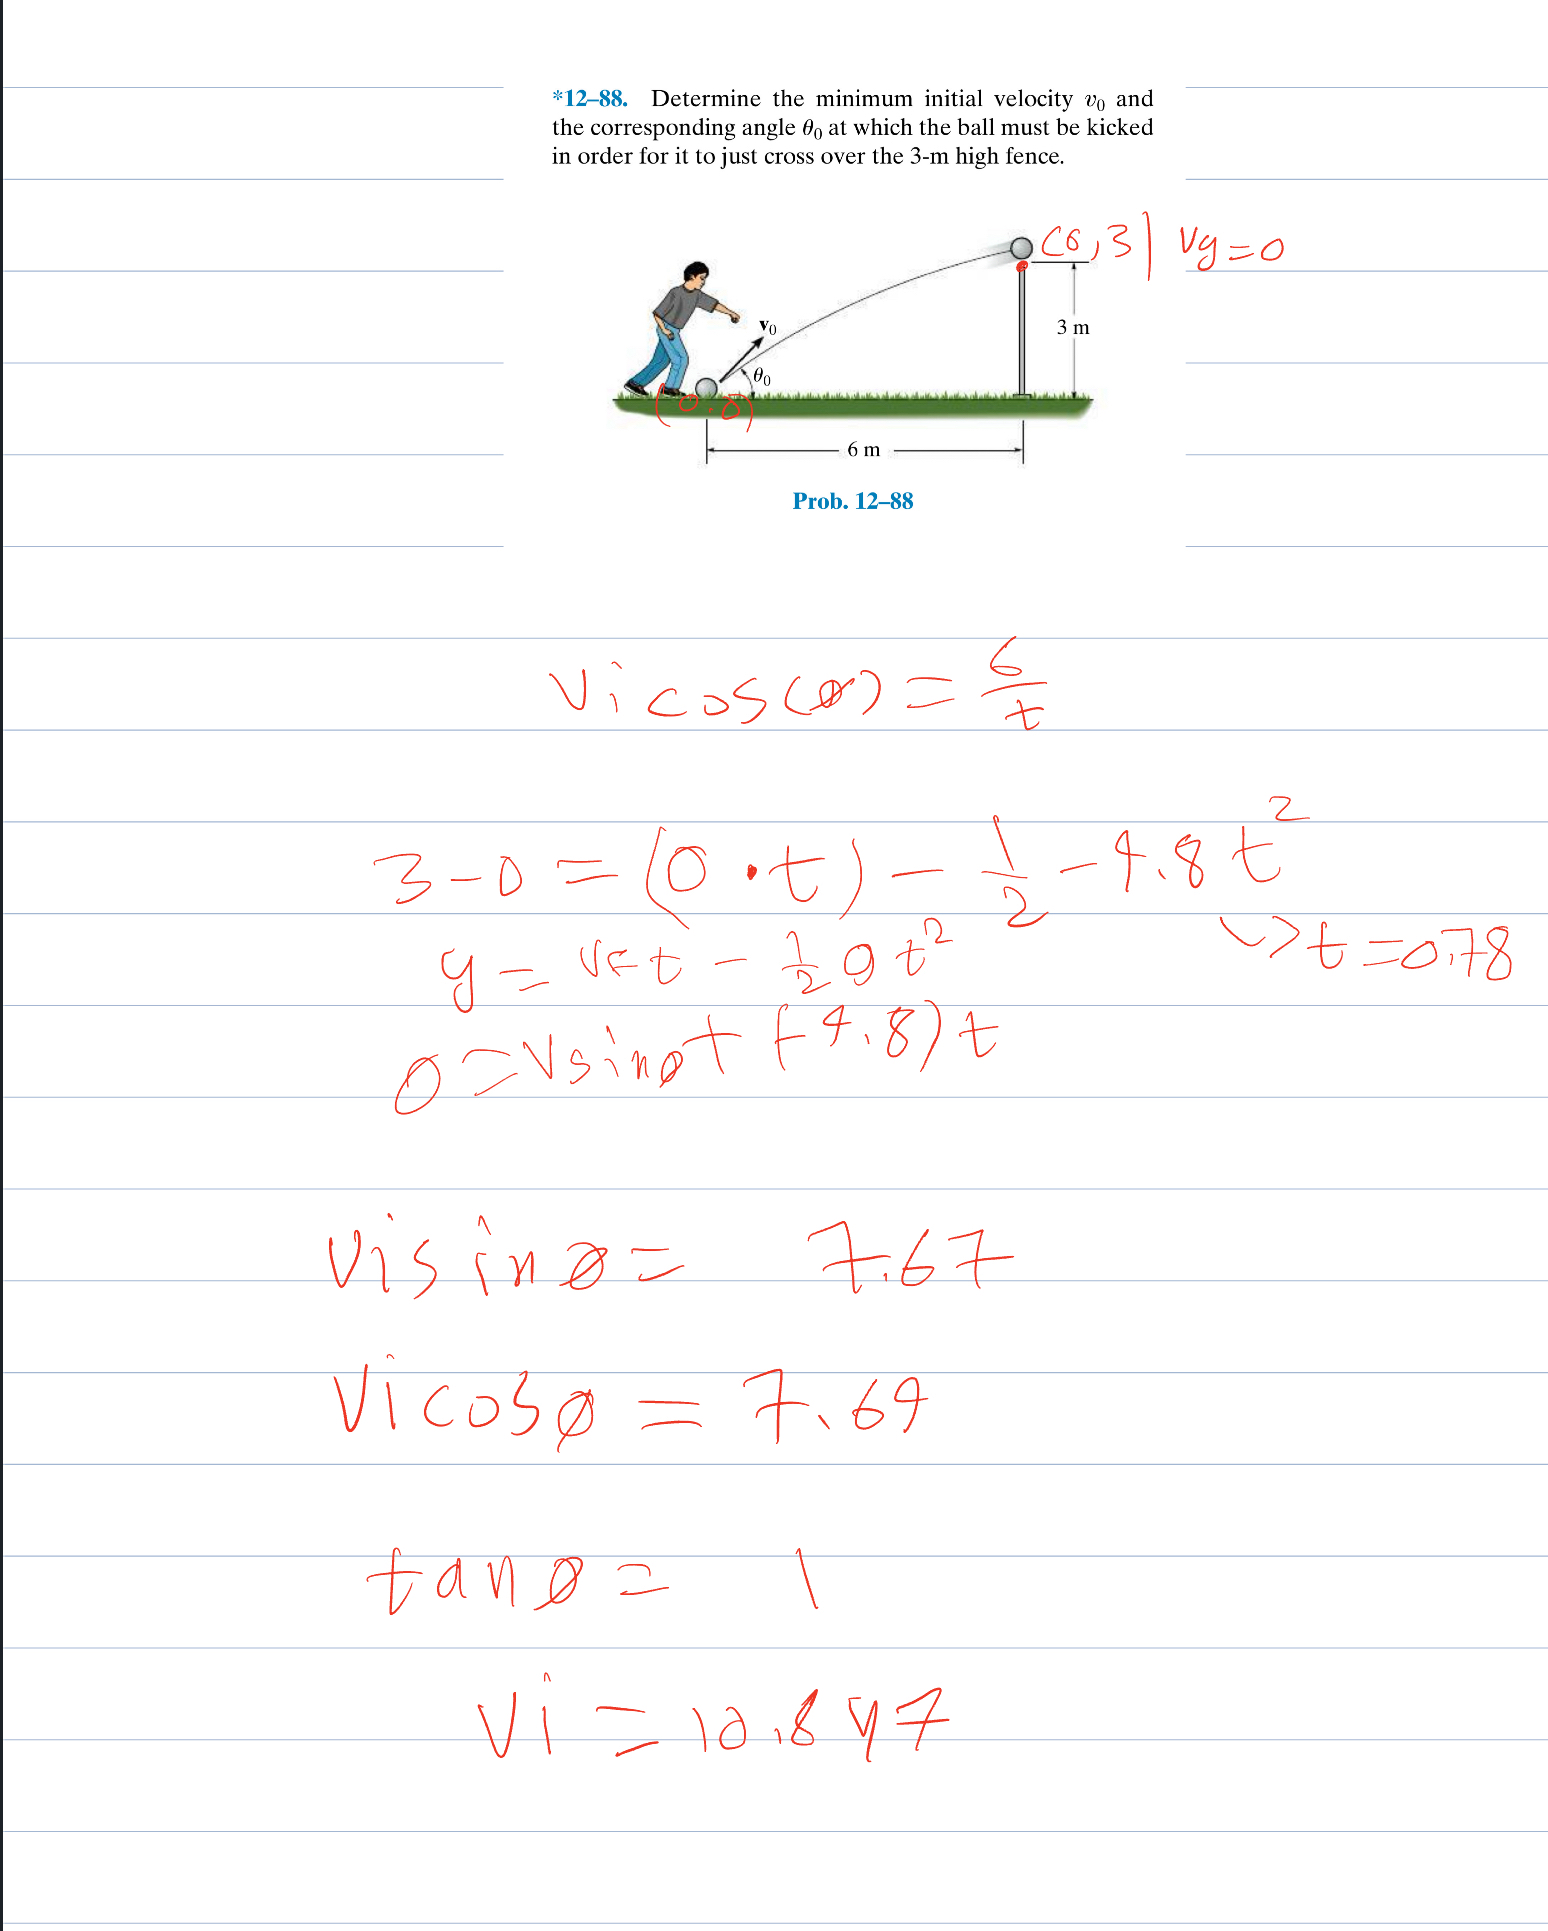 *12–88. Determine the minimum initial velocity v₀ and
the corresponding angle θ₀ at which the ball must be kicked
in order for it to just cross over the 3-m high fence.
(6,3) Vy=0
v₀
3 m
θ₀
(0.0)
6 m
Prob. 12–88
Vi cos(θ) = 6/t
3-0 = (0 · t) - 1/2 -9.8 t²
↳ t = 0.78
y = VF t - 1/2 g t²
0 = V sinθ + (-9.8) t
Vi sin θ = 7.67
Vi cos θ = 7.69
tan θ = 1
Vi = 10.847